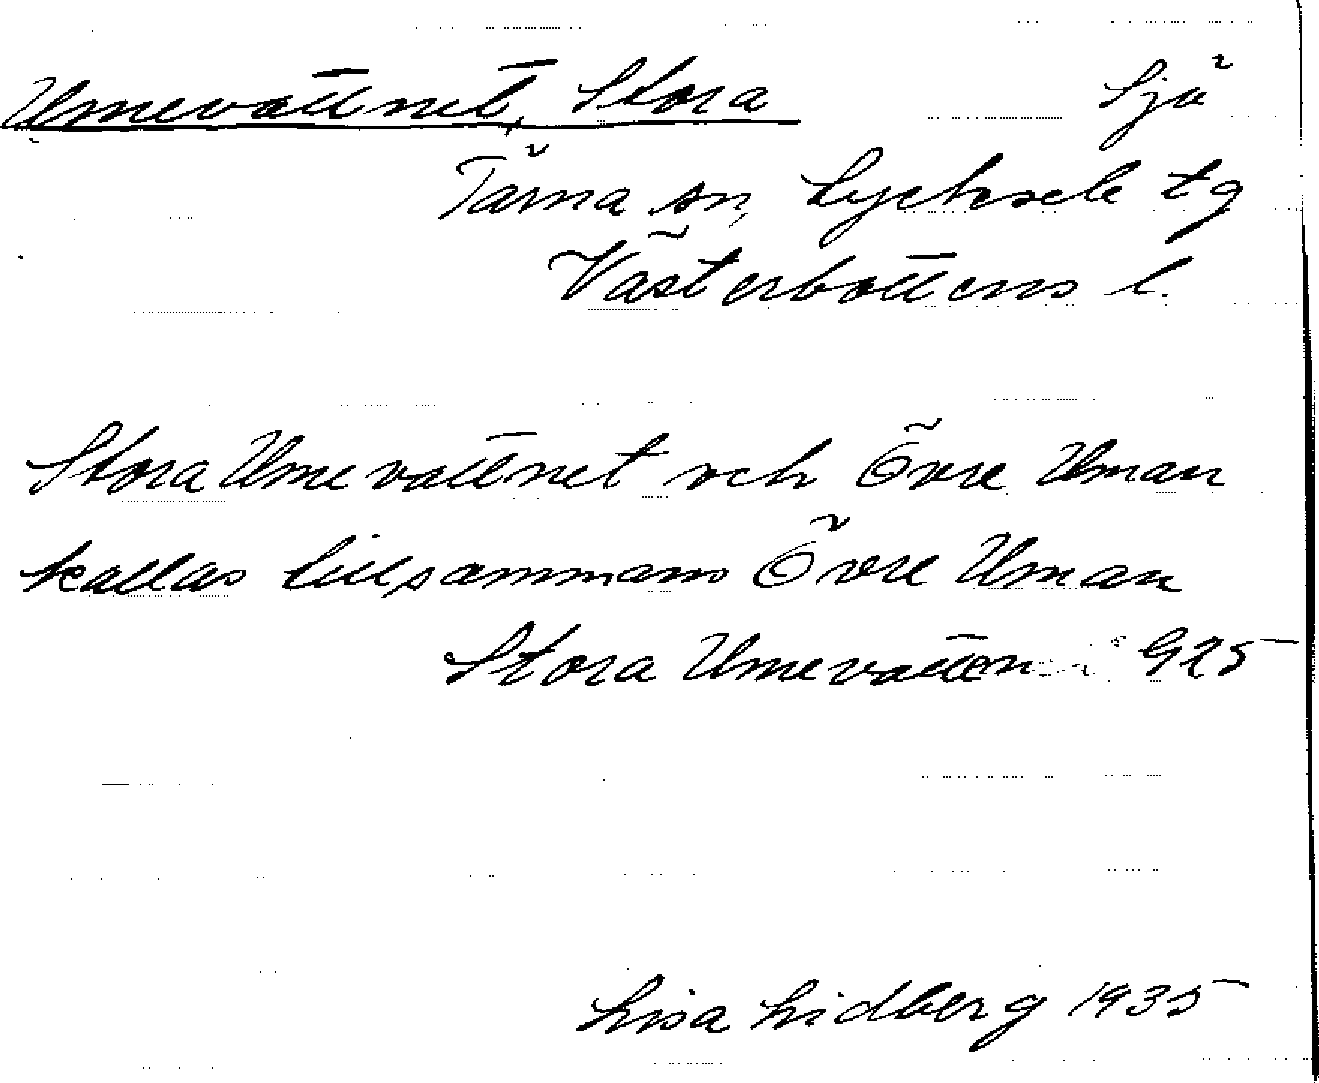 Umevattnet, Stora Sjö
Tärna sn, Lycksele tg
Västerbottens l.
Stora Umevattnet och Övre Uman
kallas tillsammans Övre Uman
Stora Umevatten G25
Lisa Lidberg 1935